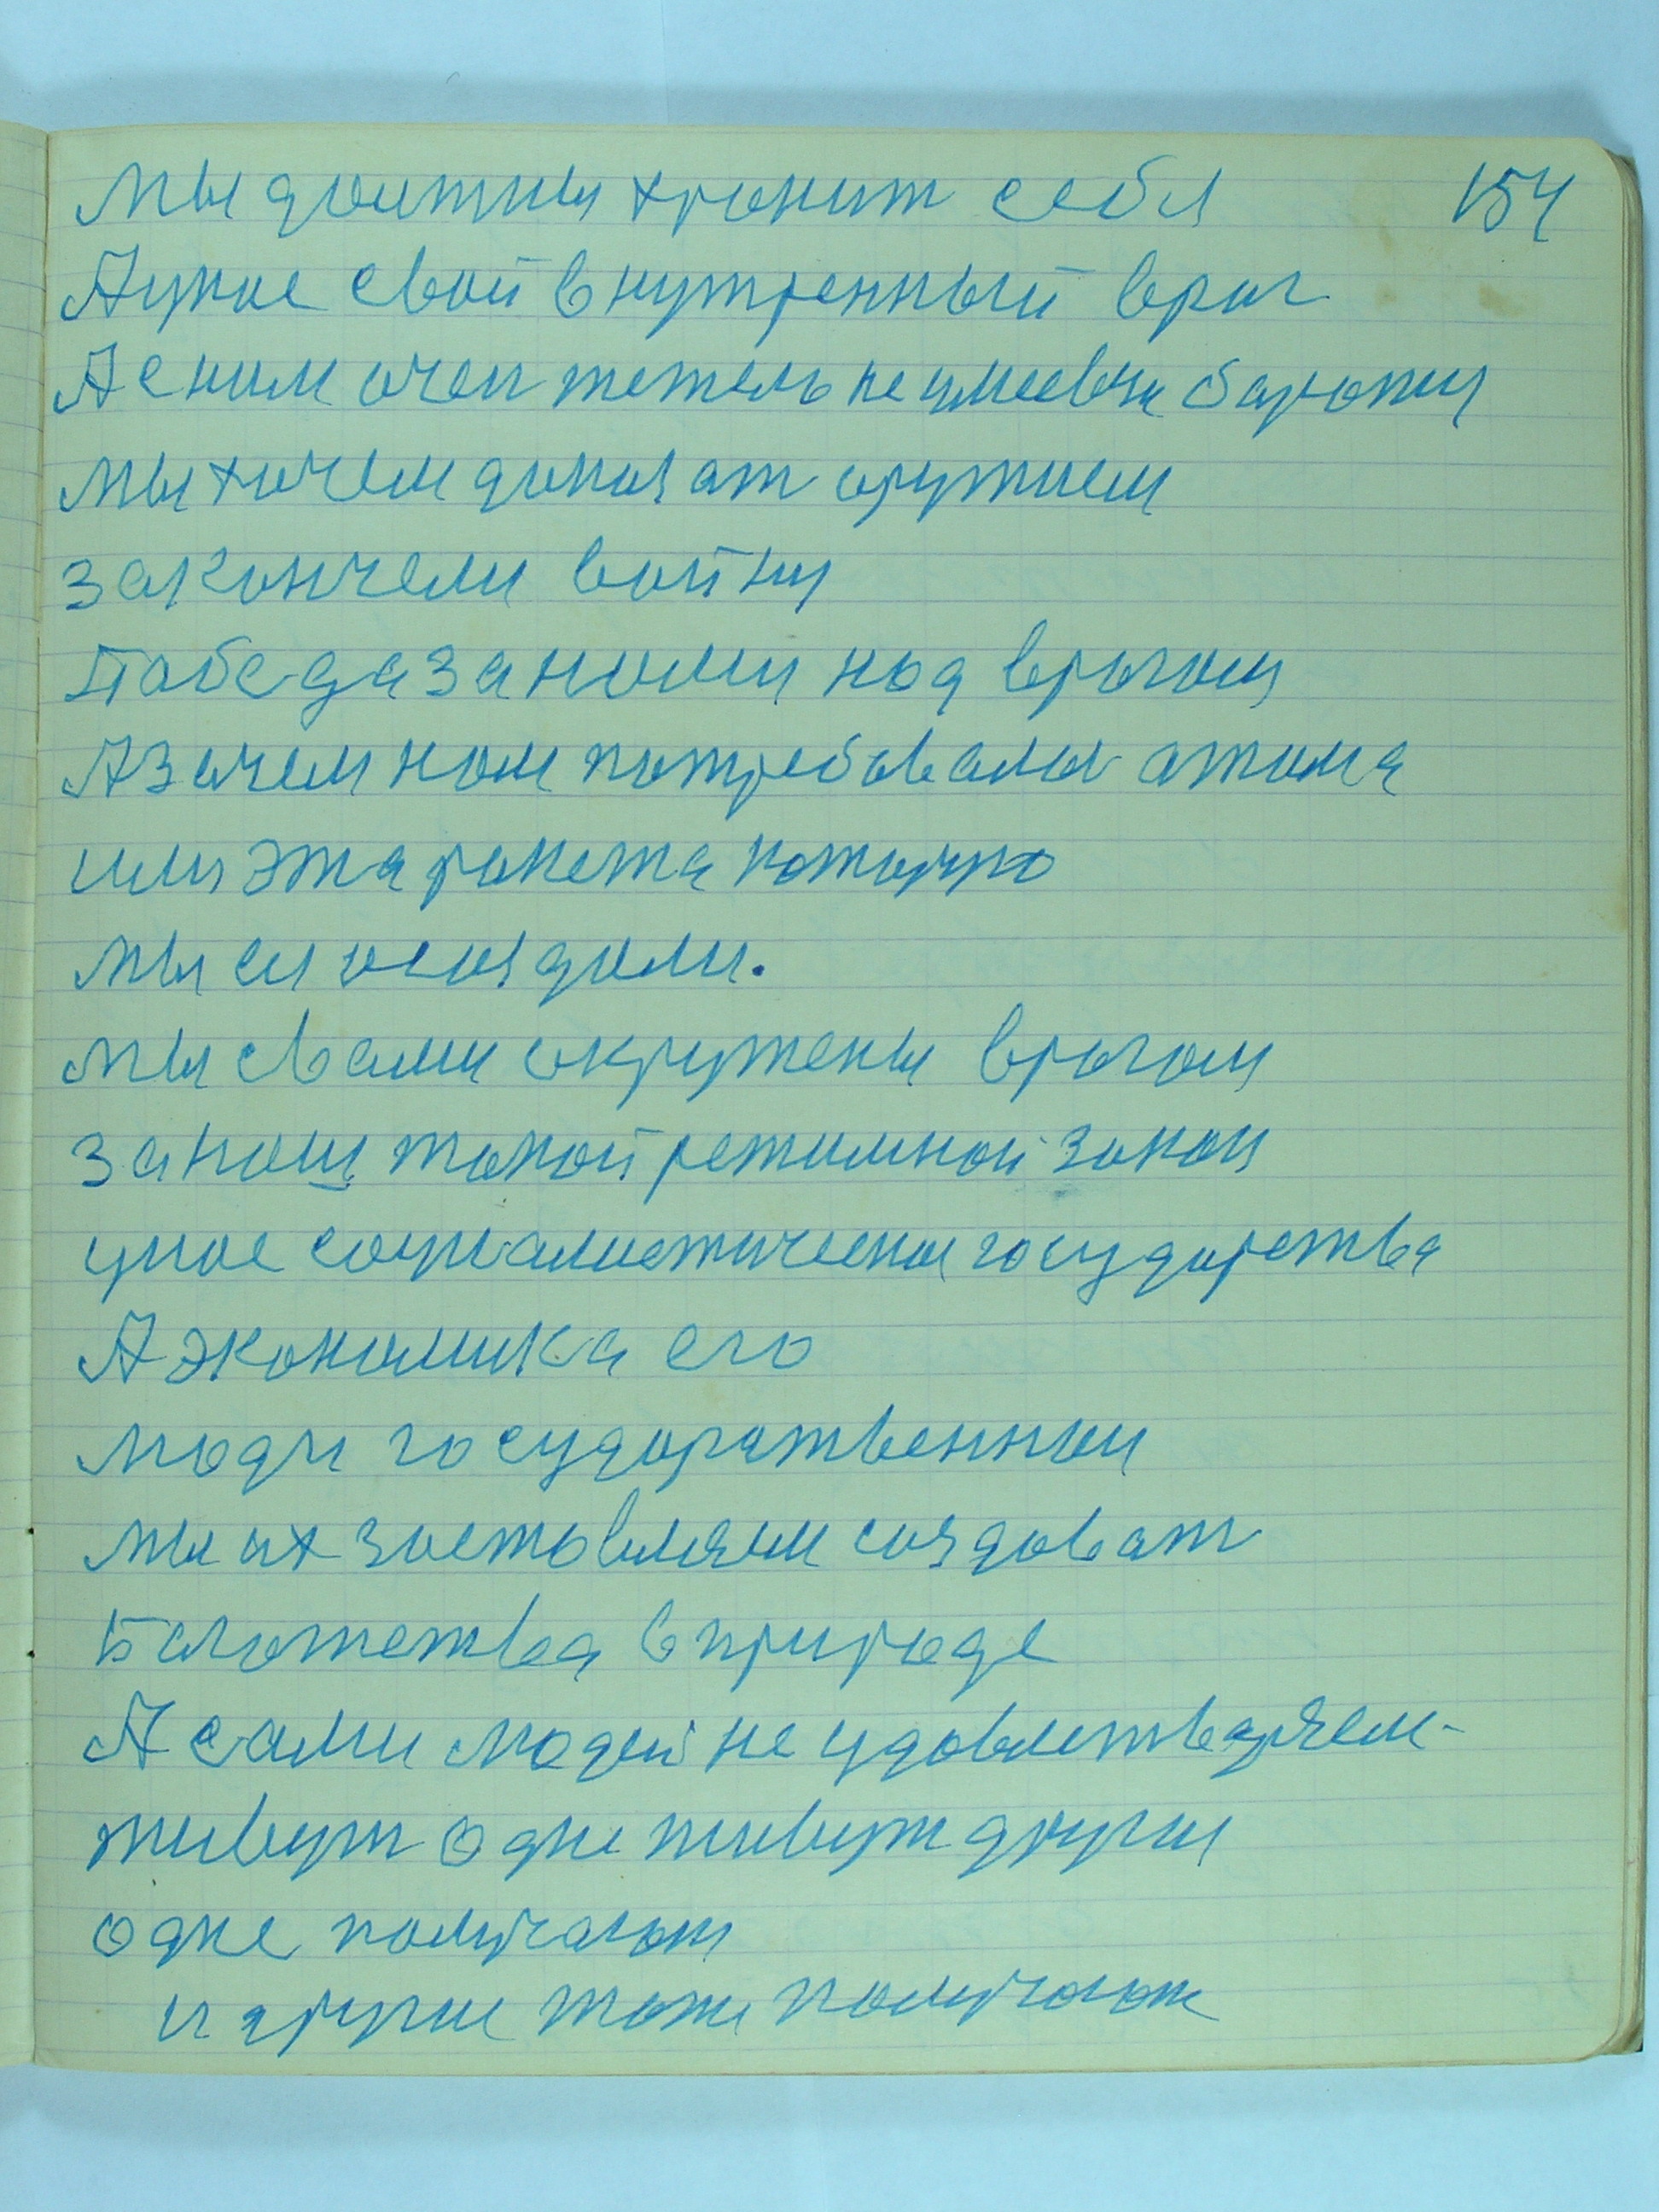 мы должны хронит себя 154
А унас свой внутренный враг
А с ним очен тежело не умеючи
мы хочем доказат оружием
закончели войну
Победа за нами над врагом
А зачем нам потребовалы атома
или эта ракета которую
мы ей создали.
мы свами окружены врагом
за наш такой режимной закон
унас социалистическая государства
А экономика его
люди государственныи
мы их заставляем создават
Богатетва в природе
А сами людей не удовлетваряем
живут одне живут други
одне получают
и другие тоже получают